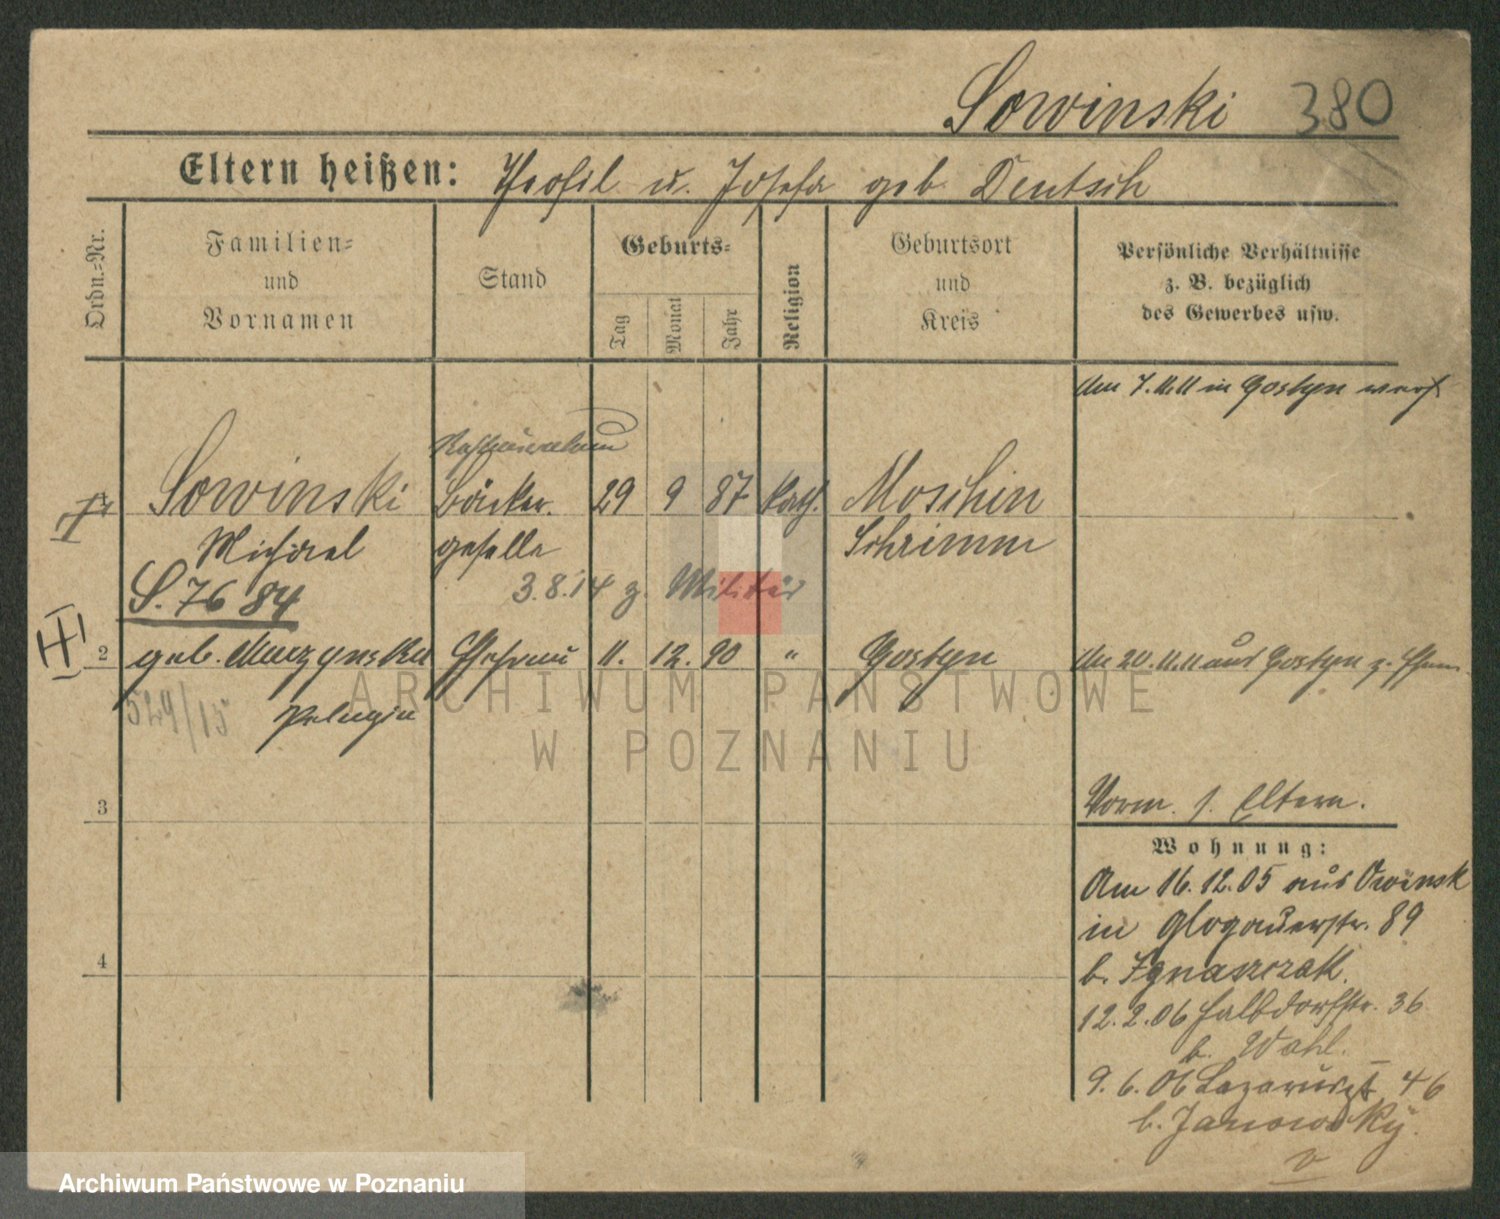 Sowinski 380
Eltern heißen: Theofil u. Josefa geb. Deutsch
Ordn.=Nr.
Familien=
und
Vornamen
Stand
Geburts=
Tag
Monat
Jahr
Religion
Geburtsort
und
Kreis
Persönliche Verhältnisse
z. B. bezüglich
des Gewerbes usw.
Am 7.11.11 in Gostyn verh.
Sowinski Bäcker. 29 9 87 kath. Moschin
Michael geselle Schrimm
S. 7684
3.8.14 z. Militär
2 geb. Murzynska Ehefrau 11. 12. 90 " Gostyn Am 20.11.11 aus Gostyn z. Ehem.
529/15 Pelagia
3
Vorm. s. Eltern.
Wohnung:
Am 16.12.05 aus Owinsk
in Glogauerstr. 89
b. Ignaszczak.
4
12.2.06 Halbdorfstr. 36
b. Wahl.
9.6.06 46
b. Janowsky.
ARCHIWUM PAŃSTWOWE
W POZNANIU
Archiwum Państwowe w Poznaniu